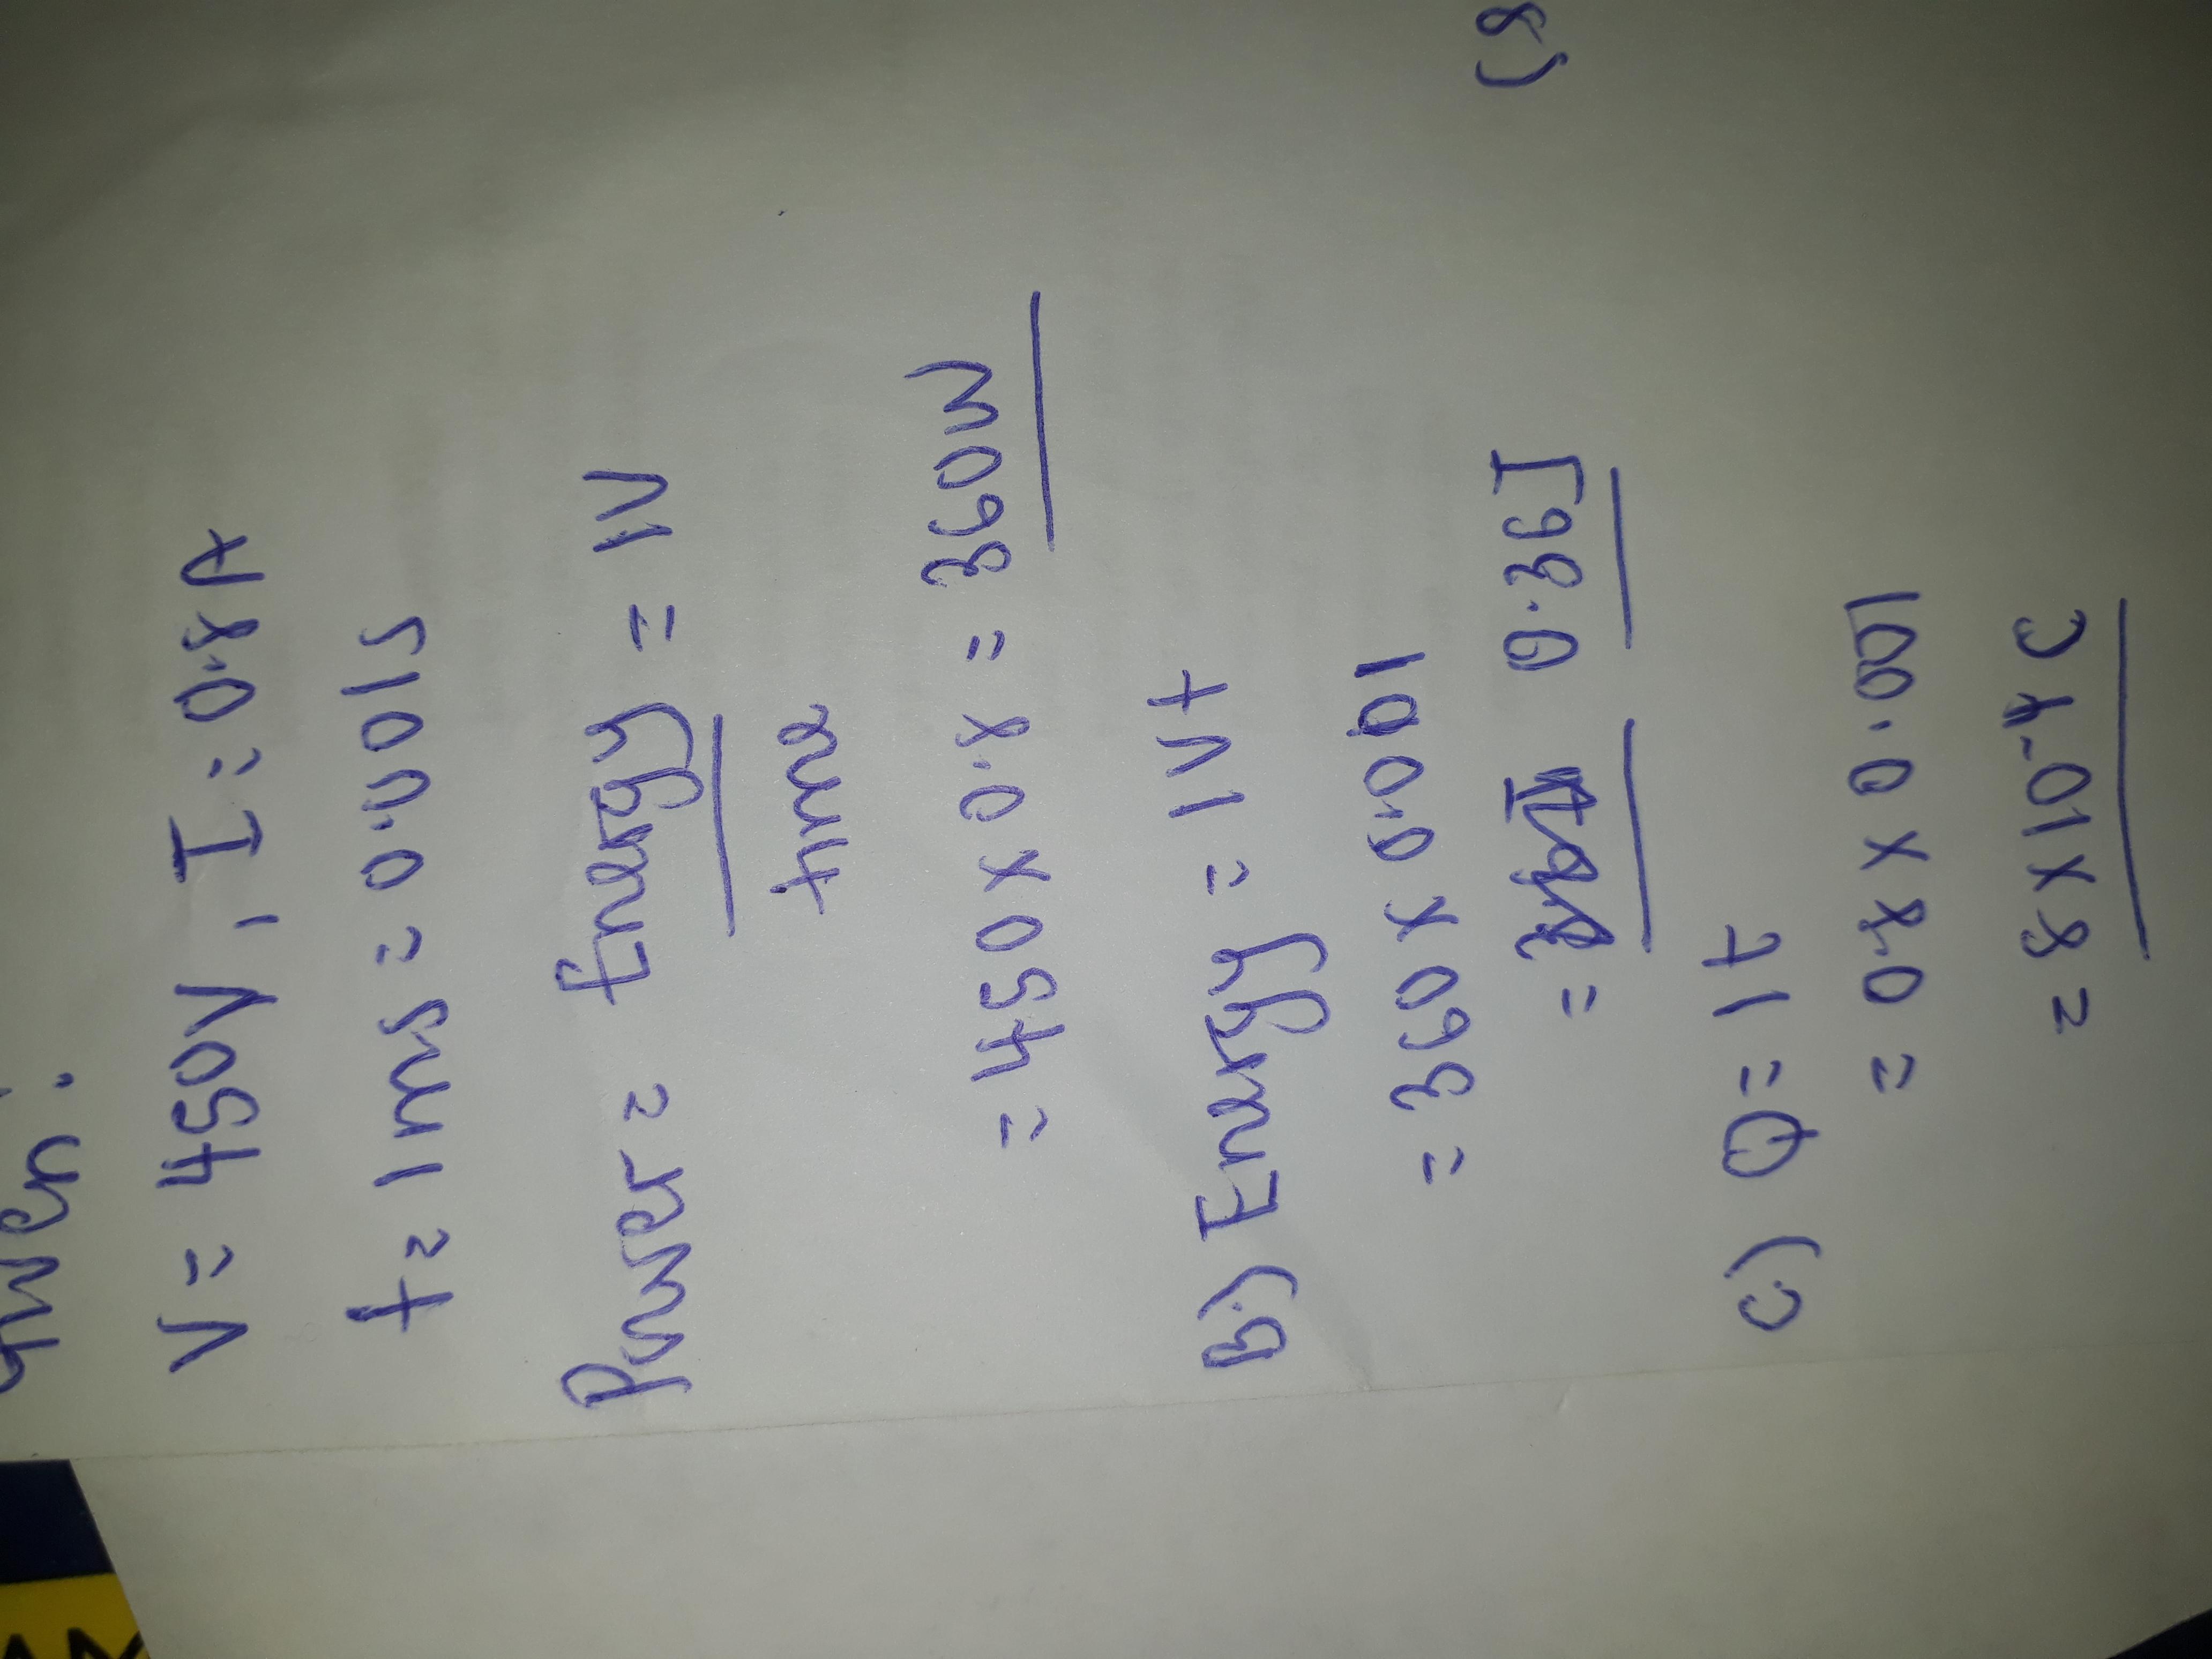 Given:
V= 450V, I = 0.8A
t= 1ms = 0.001s
Power= Energy = IV
time
= 450 x 0.8 = 360W
B.) Energy = IVt
= 360 x 0.001
= 0.36J
c.) Q= It
= 0.8 x 0.001
= 8 x 10-4 C
8)
AM